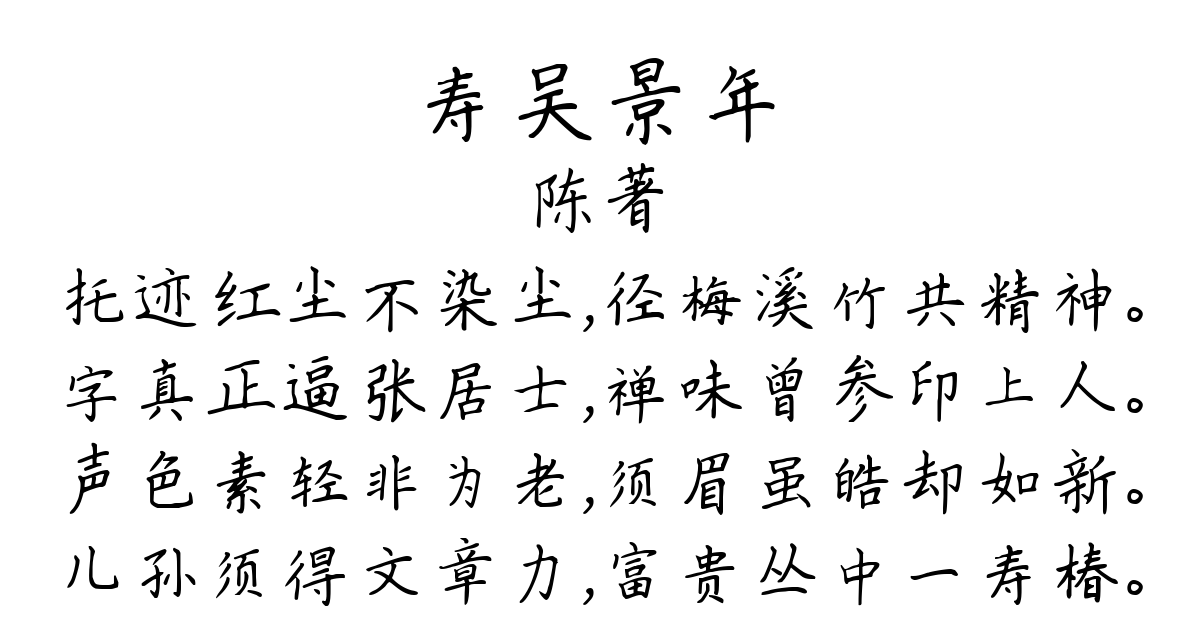 寿吴景年
陈著
托迹红尘不染尘,径梅溪竹共精神。
字真正逼张居士,禅味曾参印上人。
声色素轻非为老,须眉虽皓却如新。
儿孙须得文章力,富贵丛中一寿椿。